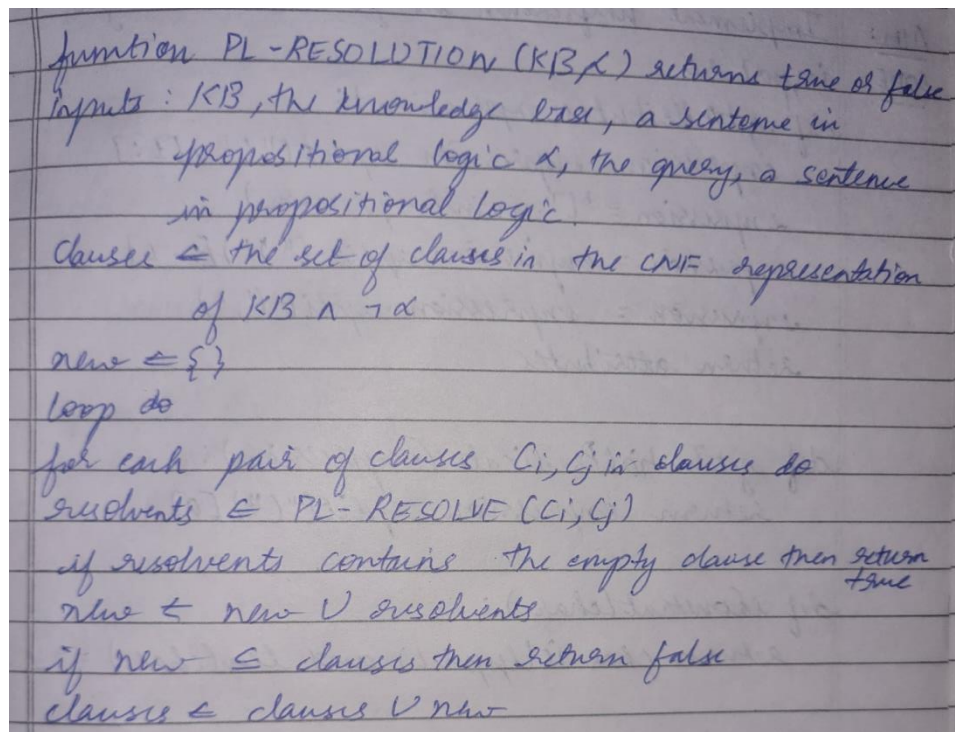 function PL-RESOLUTION (KB, α) returns true or false
inputs : KB, the knowledge base, a sentence in
propositional logic α, the query, a sentence
in propositional logic.
Clauses ← the set of clauses in the CNF representation
of KB ∧ ¬ α
new ← { }
loop do
for each pair of clauses Ci, Cj in clauses do
resolvents ← PL-RESOLVE (Ci, Cj)
if resolvents contains the empty clause then return
true
new ← new ∪ resolvents
if new ⊆ clauses then return false
clauses ← clauses ∪ new